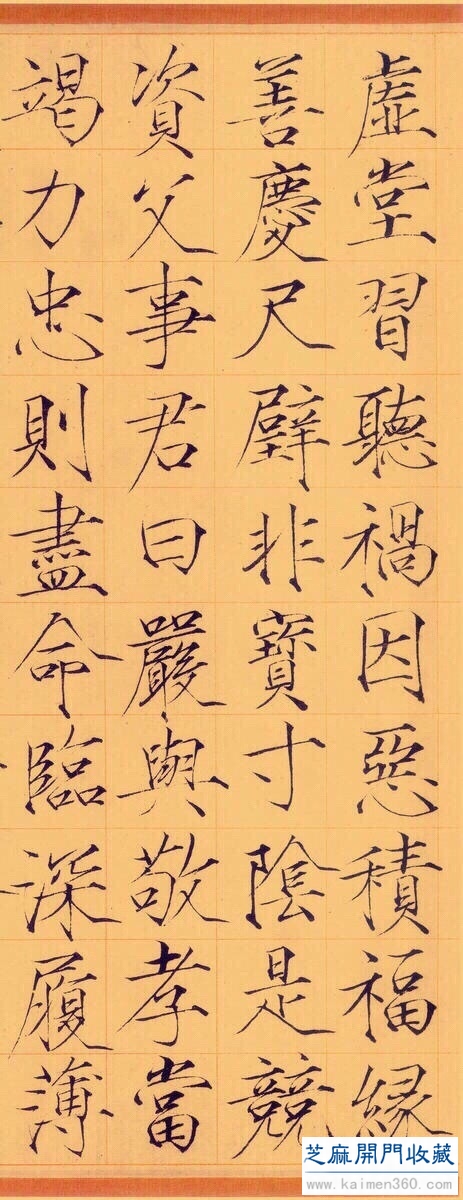 虛堂習聽禍因惡積福緣
善慶尺璧非寶寸陰是競
資父事君曰嚴與敬孝當
竭力忠則盡命臨深履薄
芝麻開門收藏
www.kaimen360.com